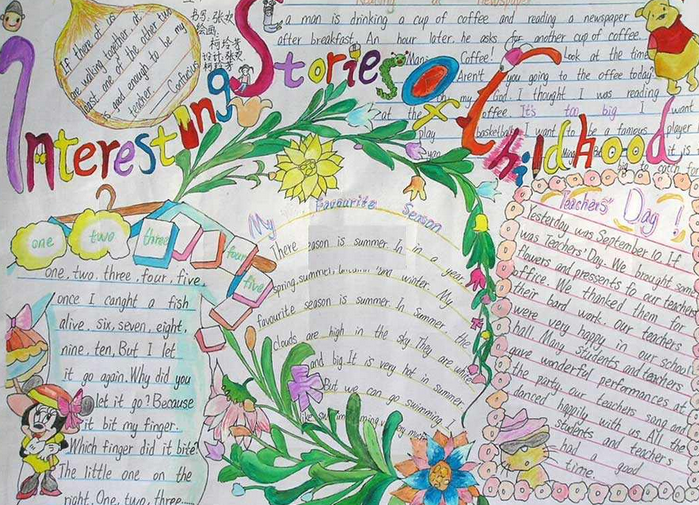 Interesting Stories of Childhood
If there is
are walking together, at
least one of the other two
is good enough to be my
teacher. — Confucius
Reading a newspaper
a man is drinking a cup of coffee and reading a newspaper
after breakfast. An hour later, he asks for another cup of coffee
Coffee! Look at the time
Aren't you going to the office today
my God. I thought I was reading
at the office
It's too big I want
play basketball. I want to be a famous player
My Favourite Season
There season is summer. In in a year,
spring, summer, and winter. My
favourite season is summer. In summer the
clouds are high in the sky. They are white
and big. It is very hot in summer.
But we can go swimming. I
like swimming very
Teachers' Day!
Yesterday was September 10. If
was Teachers' Day. We brought som
flowers and pressents fo our teachers
office. We thanked them for
their bard work. Our teachers
were very happy in our school
hall. Many students and teachers
gave wonderful performances at
the party. our teachers song and
danced happily with us. All the
students and teachers
had a good
time.
one two three four five
one, two, three, four, five,
once I canght a fish
alive, six, seven, eight,
nine, ten, But I let
it go again. Why did you
let it go? Because
it bit my finger.
Which finger did it bite?
The little one on the
right. One, two, three......